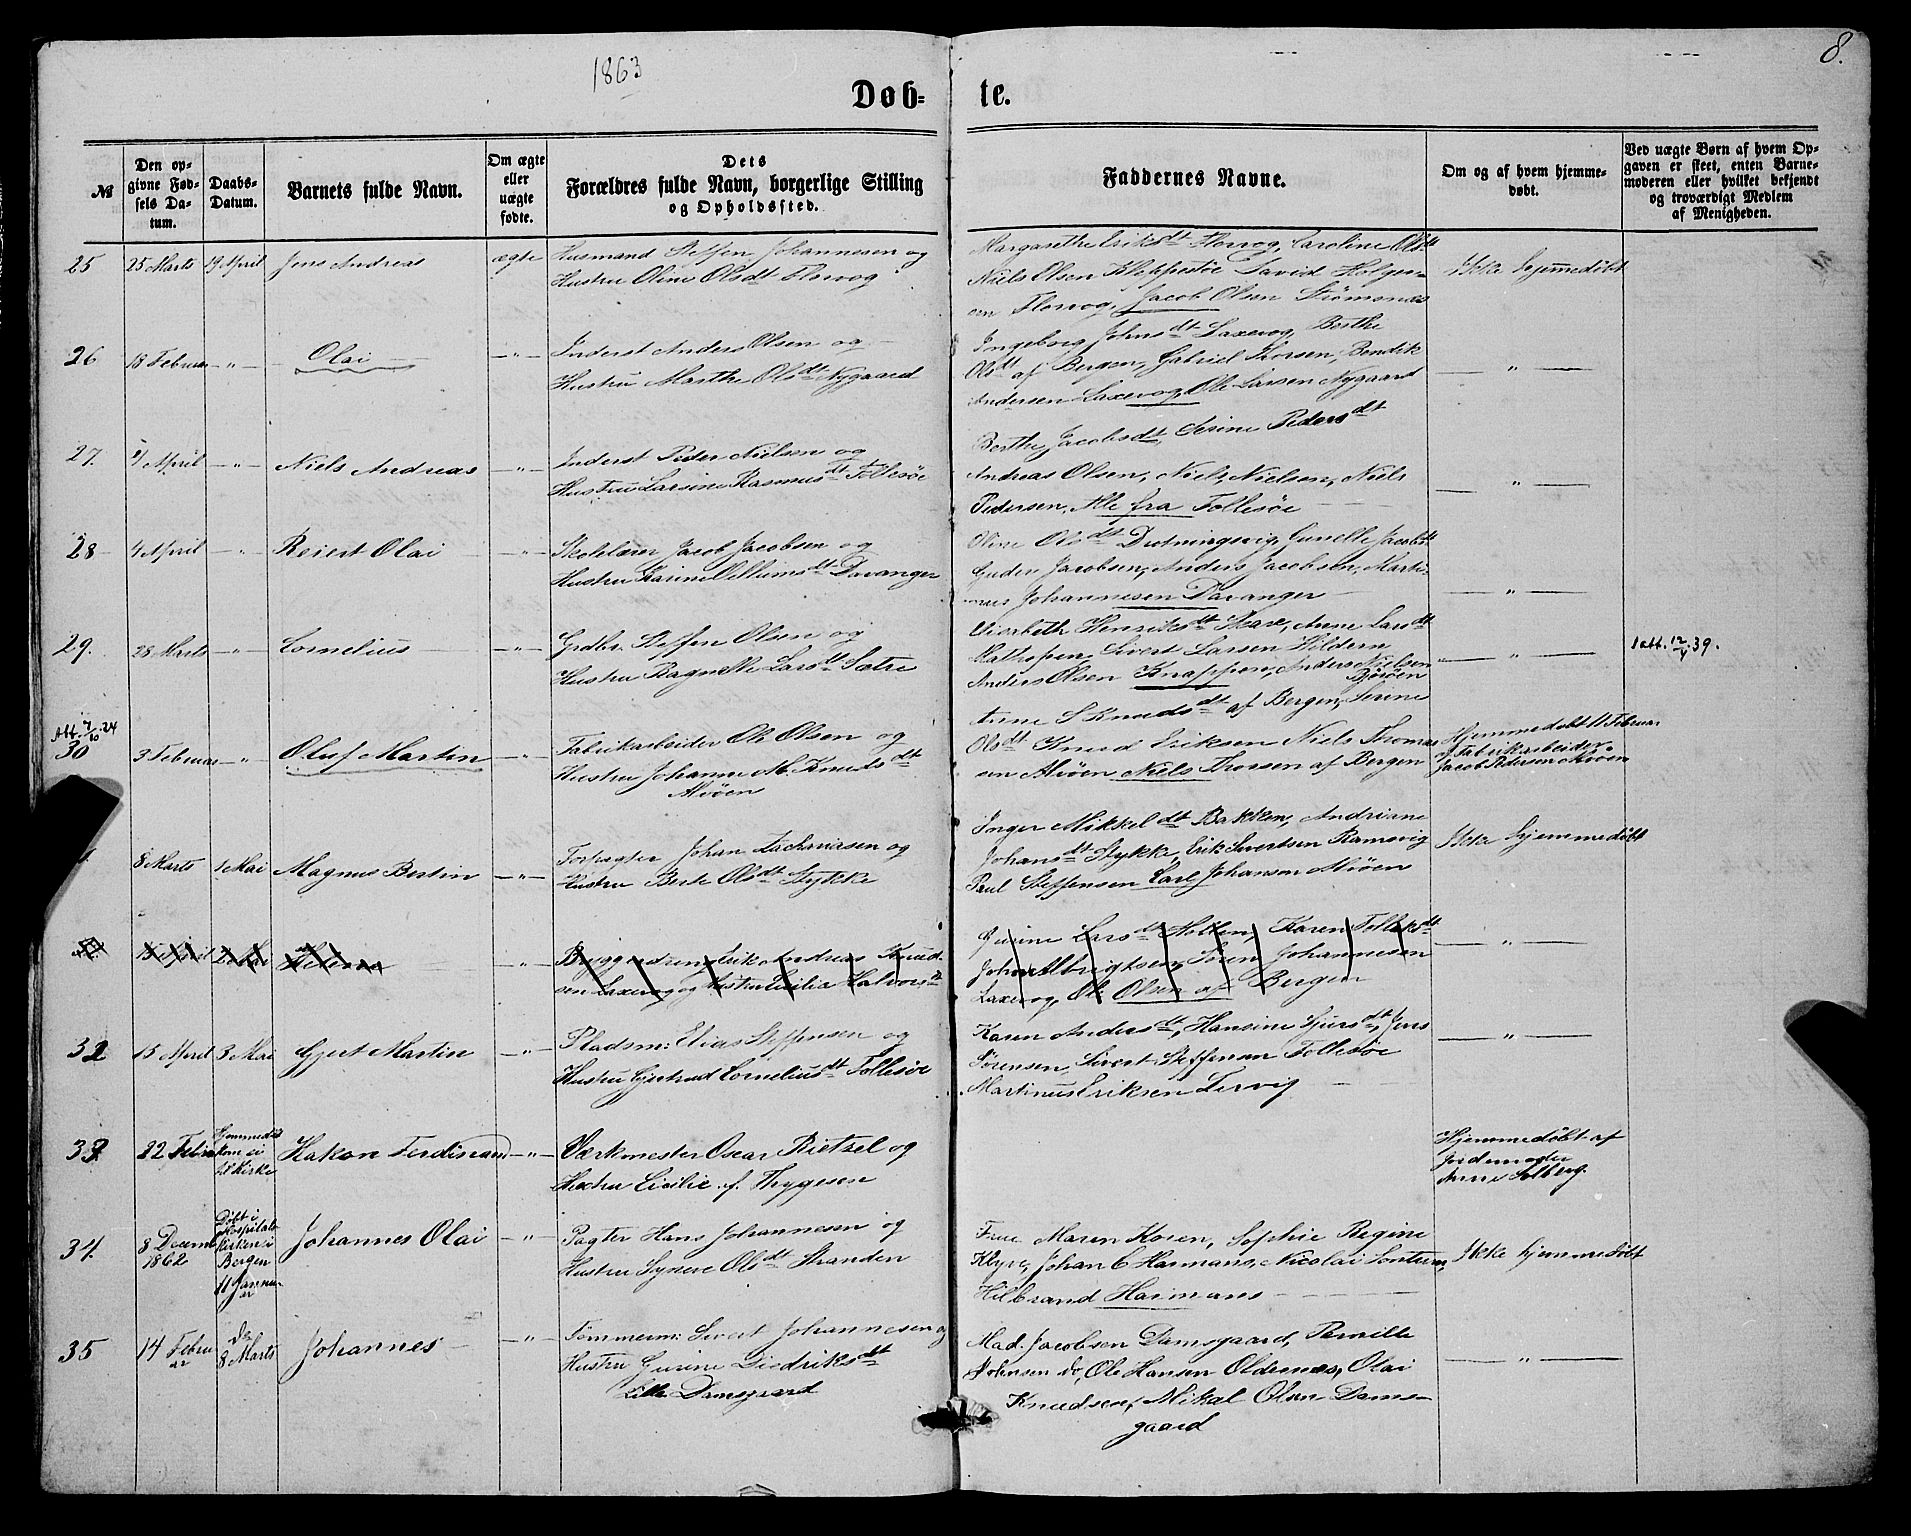 1863
8.
Døb-
te.
№
Den op-
givne Fød-
sels Da-
tum.
Daabs-
Datum.
Barnets fulde Navn.
Om ægte
eller
uægte
fødte.
Dets
Forældres fulde Navn, borgerlige Stilling
og Opholdssted.
Faddernes Navne.
Om og af hvem hjemme-
døbt.
Ved uægte Børn af hvem Op-
gaven er skeet, enten Barne-
moderen eller hvilket bekjendt
og troværdigt Medlem
af Menigheden.
25
25 Marts
19 April
Jens Andreas
ægte
Husmand Steffen Johannesen og
Hustru Oline Olsdt Florvog
Margarethe Eriksdt Florvog, Caroline Olsdt
Niels Olsen Kleppestøe David Holger-
sen Florvog, Jacob Olsen Strømsnes
Ikke hjemmedøbt
26
18 Februar
-"-
Olai
-"-
Inderst Anders Olsen og
Hustru Marthe Olsdt Nygaard
Ingeborg Johnsdt Laxevog, Berthe
Olsdt af Bergen, Gabriel Thorsen, Bendik
Andersen Laxevog, Ole Larsen Nygaard
-"-
27.
April
-"-
Niels Andreas
-"-
Inderst Peder Nielsen og
Hustru Larsine Rasmusdt Follesøe
Berthe Jacobsdt, Serine Pedersdt
Andreas Olsen, Niels Nielsen, Niels
Pedersen, Alle fra Follesøe
-"-
28
4 April
-"-
Reiert Olai
-"-
Skolelærer Jacob Jacobsen og
Hustru Karine Villumsdt Davanger
Oline Olsdt Drotningsvig, Gunelle Jacobsdt
Guder Jacobsen, Anders Jacobsen, Marti-
nus Johannesen Davanger
-"-
29.
28 Marts
-"-
Cornelius
-"-
Grdbr. Steffen Olsen og
Hustru Ragnelle Larsdt Sætre
Elisabeth Henriksdt Skare, Anne Larsdt
Kathopen, Sivert Larsen Hildern
Anders Olsen Knappen, Anders Nielsen
Bjørøen
-"-
1 att. 12/7.39.
Att. 7/10.24
30
3 Februar
-"-
Oluf Martin
-"-
Fabrikarbeider Ole Olsen og
Hustru Johanne M. Knudsdt
Alvøen
Anne S Knudsdt af Bergen, Serine
Olsdt Knud Eriksen Niels Thomas
sen Alvøen Niels Thorsen af Bergen
Hjemmedøbt 11 Februar
af Fabrikarbeider
Jacob Pedersen Alvøen
8 Marts
1 Mai
Magnus Bertin
-"-
Forpagter Johan Zachariasen og
Hustru Berte Olsdt Stykke
Inger Mikkeldt Bakken, Andriane
Johansdt Stykke, Erik Sivertsen Ramsvig
Paul Steffensen Carl Johanson Alvøen
Ikke hjemmedøbt
15 April
2 Mai
Helene
-"-
Byggedreng Erik Andreas Knud-
sen Laxevog og Hustru Cecilia Halvorsdt
Gurine Larsdt Holten, Karen Folleksdt
John Albrigtsen, Søren Johannesen
Laxevog, Ole Olsen af Bergen
-"-
32
15 April
3 Mai
Gjert Martin
-"-
Pladsm: Elias Steffensen og
Hustru Gjertrud Corneliusdt Follesøe
Karen Andersdt, Hansine Sjursdt, Jens
Sørensen, Sivert Steffensen Follesøe
Martinus Eriksen Lervig
-"-
33
22 Febru
Hjemmedøbt
kom ei
til Kirke
Hakon Ferdinand
-"-
Værkmester Oscar Rietzel og
Hustru Cicilie f. Thygesen
Hjemmedøbt af
Jordemoder
Anne Solberg.
34.
8 Decemb
1862
Døbt i
Hospitals
kirken i
Bergen
11 Januar
Johannes Olai
-"-
Pagter Hans Johannesen og
Hustru Synove Olsdt Stranden
Frue Maren Koren, Sophie Regine
Klyve, Johan C Harmans, Nicolai Sontum,
Hilbrand Harmans
Ikke hjemmedøbt
35
14 Febru
ar
8 Marts
Johannes
-"-
Tømmerm: Sivert Johannesen og
Hustru Gurine Diedriksdt
Lille Damsgaard
Mad. Jacobsen Damsgaard, Pernille
Johnsen do, Ole Hansen Oldernes, Olai
Knudsen, Mikal Olsen Dams-
gaard
-"-